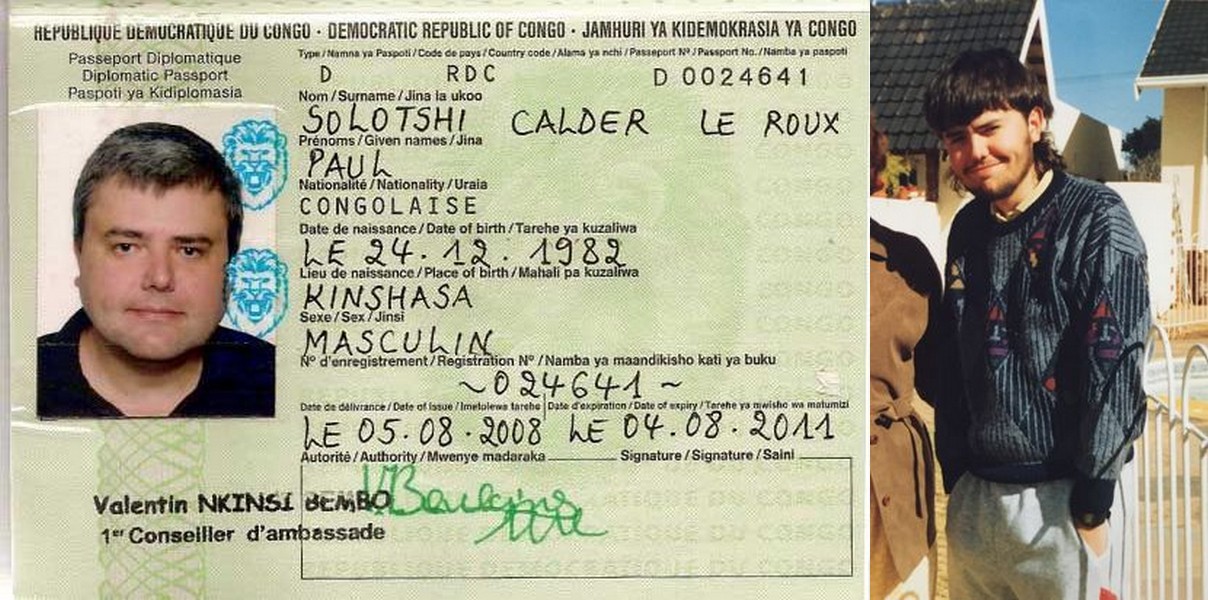 RÉPUBLIQUE DÉMOCRATIQUE DU CONGO · DEMOCRATIC REPUBLIC OF CONGO · JAMHURI YA KIDEMOKRASIA YA CONGO
Passeport Diplomatique
Diplomatic Passport
Paspoti ya Kidiplomasia
Type / Namna ya Paspoti / Code de pays / Country code / Alama ya nchi / Passeport Nº / Passport No. / Namba ya paspoti
D RDC D 0024641
Nom / Surname / Jina la ukoo
SOLOTSHI CALDER LE ROUX
Prénoms / Given names / Jina
PAUL
Nationalité / Nationality / Uraia
CONGOLAISE
Date de naissance / Date of birth / Tarehe ya kuzaliwa
LE 24.12.1982
Lieu de naissance / Place of birth / Mahali pa kuzaliwa
KINSHASA
Sexe / Sex / Jinsi
MASCULIN
Nº d'enregistrement / Registration Nº / Namba ya maandikisho kati ya buku
~024641~
Date de délivrance / Date of issue / Imetolewa tarehe Date d'expiration / Date of expiry / Tarehe ya mwisho wa matumizi
LE 05.08.2008 LE 04.08.2011
Autorité / Authority / Mwenye madaraka Signature / Signature / Saini
Valentin NKINSI BEMBO
1er Conseiller d'ambassade